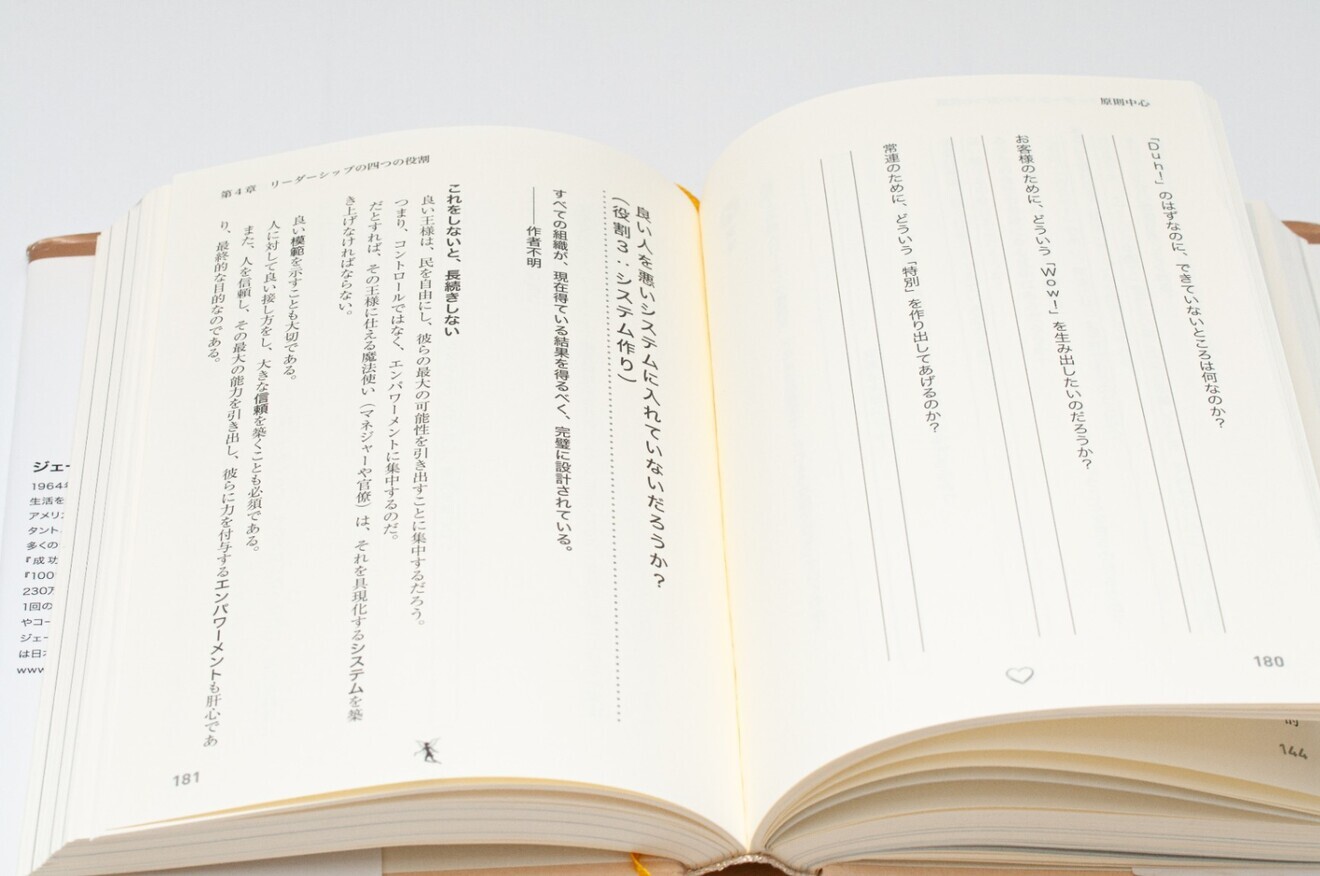 原則中心
「Duh!」のはずなのに、できていないところは何なのか？
お客様のために、どういう「Wow!」を生み出したいのだろうか？
常連のために、どういう「特別」を作り出してあげるのか？
180
144
第4章　リーダーシップの四つの役割
良い人を悪いシステムに入れていないだろうか？
（役割3：システム作り）
すべての組織が、現在得ている結果を得るべく、完璧に設計されている。
――作者不明
これをしないと、長続きしない
良い王様は、民を自由にし、彼らの最大の可能性を引き出すことに集中するだろう。
つまり、コントロールではなく、エンパワーメントに集中するのだ。
だとすれば、その王様に仕える魔法使い（マネジャーや官僚）は、それを具現化するシステムを築
き上げなければならない。
良い模範を示すことも大切である。
人に対して良い接し方をし、大きな信頼を築くことも必須である。
また、人を信頼し、その最大の能力を引き出し、彼らに力を付与するエンパワーメントも肝心であ
り、最終的な目的なのである。
181
ジェー
1964
生活を
アメリ
タント
多くの
『成功
『100
230万
1回の
やコー
ジェー
は日
www